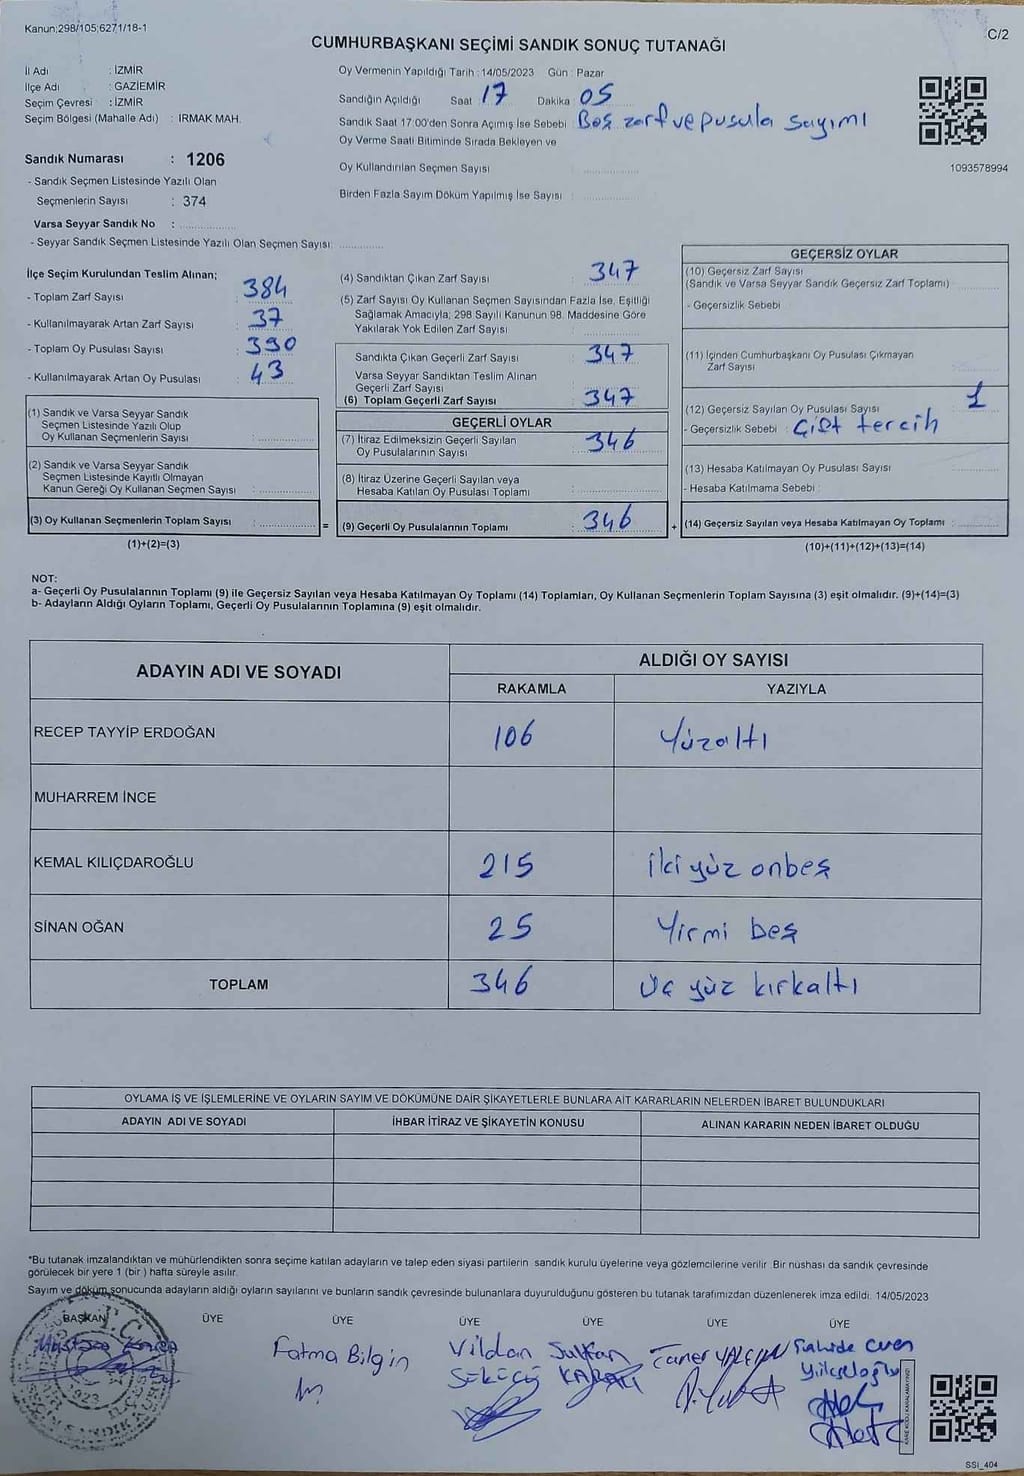 Kanun;298/105;6271/18-1
C/2
CUMHURBAŞKANI SEÇİMİ SANDIK SONUÇ TUTANAĞI
İl Adı : İZMİR
İlçe Adı : GAZİEMİR
Seçim Çevresi : İZMİR
Seçim Bölgesi (Mahalle Adı) : IRMAK MAH.
Oy Vermenin Yapıldığı Tarih : 14/05/2023 Gün : Pazar
Sandığın Açıldığı Saat 17 Dakika 05
Sandık Saat 17:00'den Sonra Açımış İse Sebebi : Boş zarf ve pusula sayımı
Oy Verme Saati Bitiminde Sırada Bekleyen ve
Oy Kullandırılan Seçmen Sayısı
Birden Fazla Sayım Döküm Yapılmış İse Sayısı :
1093578994
Sandık Numarası : 1206
- Sandık Seçmen Listesinde Yazılı Olan
Seçmenlerin Sayısı : 374
Varsa Seyyar Sandık No :
- Seyyar Sandık Seçmen Listesinde Yazılı Olan Seçmen Sayısı:
İlçe Seçim Kurulundan Teslim Alınan;
- Toplam Zarf Sayısı : 384
- Kullanılmayarak Artan Zarf Sayısı : 37
- Toplam Oy Pusulası Sayısı : 390
- Kullanılmayarak Artan Oy Pusulası : 43
(1) Sandık ve Varsa Seyyar Sandık
Seçmen Listesinde Yazılı Olup
Oy Kullanan Seçmenlerin Sayısı :
(2) Sandık ve Varsa Seyyar Sandık
Seçmen Listesinde Kayıtlı Olmayan
Kanun Gereği Oy Kullanan Seçmen Sayısı :
(3) Oy Kullanan Seçmenlerin Toplam Sayısı : =
(1)+(2)=(3)
(4) Sandıktan Çıkan Zarf Sayısı : 347
(5) Zarf Sayısı Oy Kullanan Seçmen Sayısından Fazla İse, Eşitliği
Sağlamak Amacıyla; 298 Sayılı Kanunun 98. Maddesine Göre
Yakılarak Yok Edilen Zarf Sayısı :
Sandıkta Çıkan Geçerli Zarf Sayısı : 347
Varsa Seyyar Sandıktan Teslim Alınan
Geçerli Zarf Sayısı :
(6) Toplam Geçerli Zarf Sayısı : 347
GEÇERLİ OYLAR
(7) İtiraz Edilmeksizin Geçerli Sayılan
Oy Pusulalarının Sayısı : 346
(8) İtiraz Üzerine Geçerli Sayılan veya
Hesaba Katılan Oy Pusulası Toplamı :
(9) Geçerli Oy Pusulalarının Toplamı : 346 +
GEÇERSİZ OYLAR
(10) Geçersiz Zarf Sayısı
(Sandık ve Varsa Seyyar Sandık Geçersiz Zarf Toplamı)
- Geçersizlik Sebebi :
(11) İçinden Cumhurbaşkanı Oy Pusulası Çıkmayan
Zarf Sayısı
(12) Geçersiz Sayılan Oy Pusulası Sayısı 1
- Geçersizlik Sebebi : Çift tercih
(13) Hesaba Katılmayan Oy Pusulası Sayısı
- Hesaba Katılmama Sebebi :
(14) Geçersiz Sayılan veya Hesaba Katılmayan Oy Toplamı :
(10)+(11)+(12)+(13)=(14)
NOT:
a- Geçerli Oy Pusulalarının Toplamı (9) ile Geçersiz Sayılan veya Hesaba Katılmayan Oy Toplamı (14) Toplamları, Oy Kullanan Seçmenlerin Toplam Sayısına (3) eşit olmalıdır. (9)+(14)=(3)
b- Adayların Aldığı Oyların Toplamı, Geçerli Oy Pusulalarının Toplamına (9) eşit olmalıdır.
ADAYIN ADI VE SOYADI
ALDIĞI OY SAYISI
RAKAMLA YAZIYLA
RECEP TAYYİP ERDOĞAN 106 Yüzaltı
MUHARREM İNCE
KEMAL KILIÇDAROĞLU 215 iki yüz onbeş
SİNAN OĞAN 25 Yirmi beş
TOPLAM 346 üç yüz kırkaltı
OYLAMA İŞ VE İŞLEMLERİNE VE OYLARIN SAYIM VE DÖKÜMÜNE DAİR ŞİKAYETLERLE BUNLARA AİT KARARLARIN NELERDEN İBARET BULUNDUKLARI
ADAYIN ADI VE SOYADI İHBAR İTİRAZ VE ŞİKAYETİN KONUSU ALINAN KARARIN NEDEN İBARET OLDUĞU
*Bu tutanak imzalandıktan ve mühürlendikten sonra seçime katılan adayların ve talep eden siyasi partilerin sandık kurulu üyelerine veya gözlemcilerine verilir. Bir nüshası da sandık çevresinde
görülecek bir yere 1 (bir) hafta süreyle asılır.
Sayım ve döküm sonucunda adayların aldığı oyların sayılarını ve bunların sandık çevresinde bulunanlara duyurulduğunu gösteren bu tutanak tarafımızdan düzenlenerek imza edildi. 14/05/2023
BAŞKAN ÜYE ÜYE ÜYE ÜYE ÜYE ÜYE
Fatma Bilgin
Vildan
Sultan
Taner YALÇIN
T.C.
1923
SSI_404